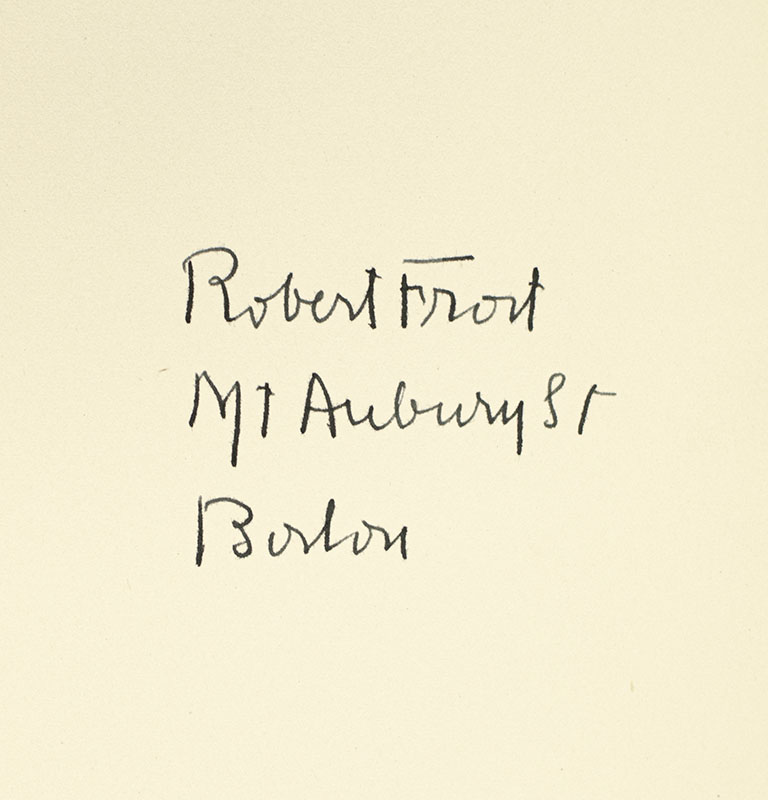 Robert Frost
Mt Aubury St
Boston